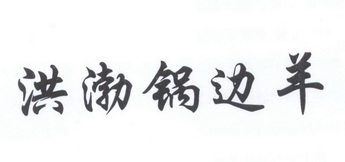 洪渤锅边羊